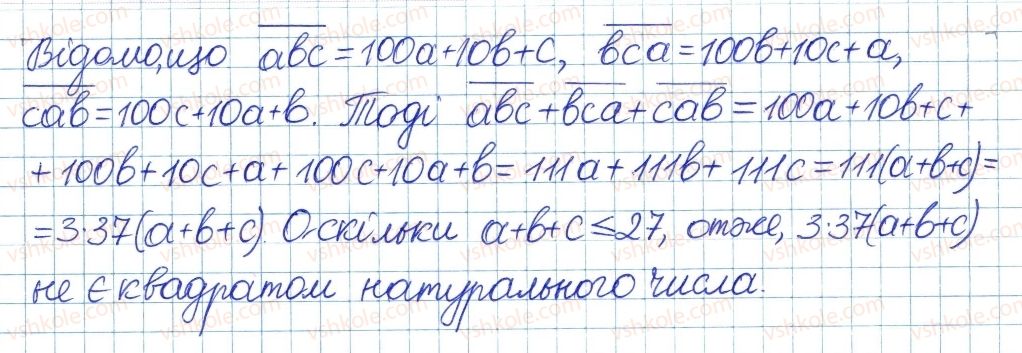 Відомо, що abc = 100a + 10b + c, bca = 100b + 10c + a,
cab = 100c + 10a + b. Тоді abc + bca + cab = 100a + 10b + c +
+ 100b + 10c + a + 100c + 10a + b = 111a + 111b + 111c = 111(a+b+c) =
= 3·37(a+b+c). Оскільки a+b+c ≤ 27, отже, 3·37(a+b+c)
не є квадратом натурального числа.